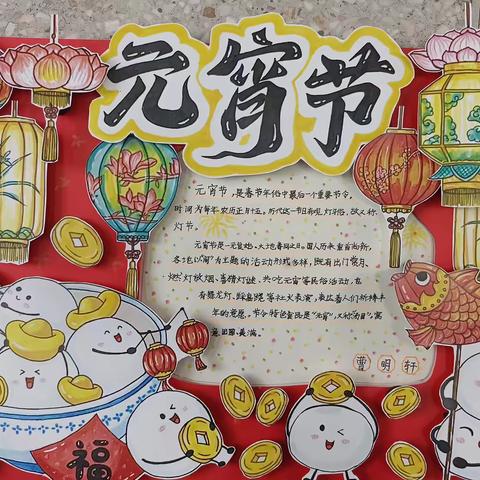 元宵节
元宵节，是春节年俗中最后一个重要节令，
时间为每年农历正月十五，历代这一节日有观灯习俗，故又称
灯节。
元宵是一元复始、大地春回之日。国人历来重首尚始，
各地以"闹"为主题的活动形式多样，既有出门赏月、
燃灯放烟、喜猜灯谜、共吃元宵等民俗活动，在
有耍龙灯、踩高跷等社火表演，表达着人们祈禱丰
年的意愿。节令特色食品是"元宵"，又称"汤圆"，寓
意团圆、美满。
曹明轩
福